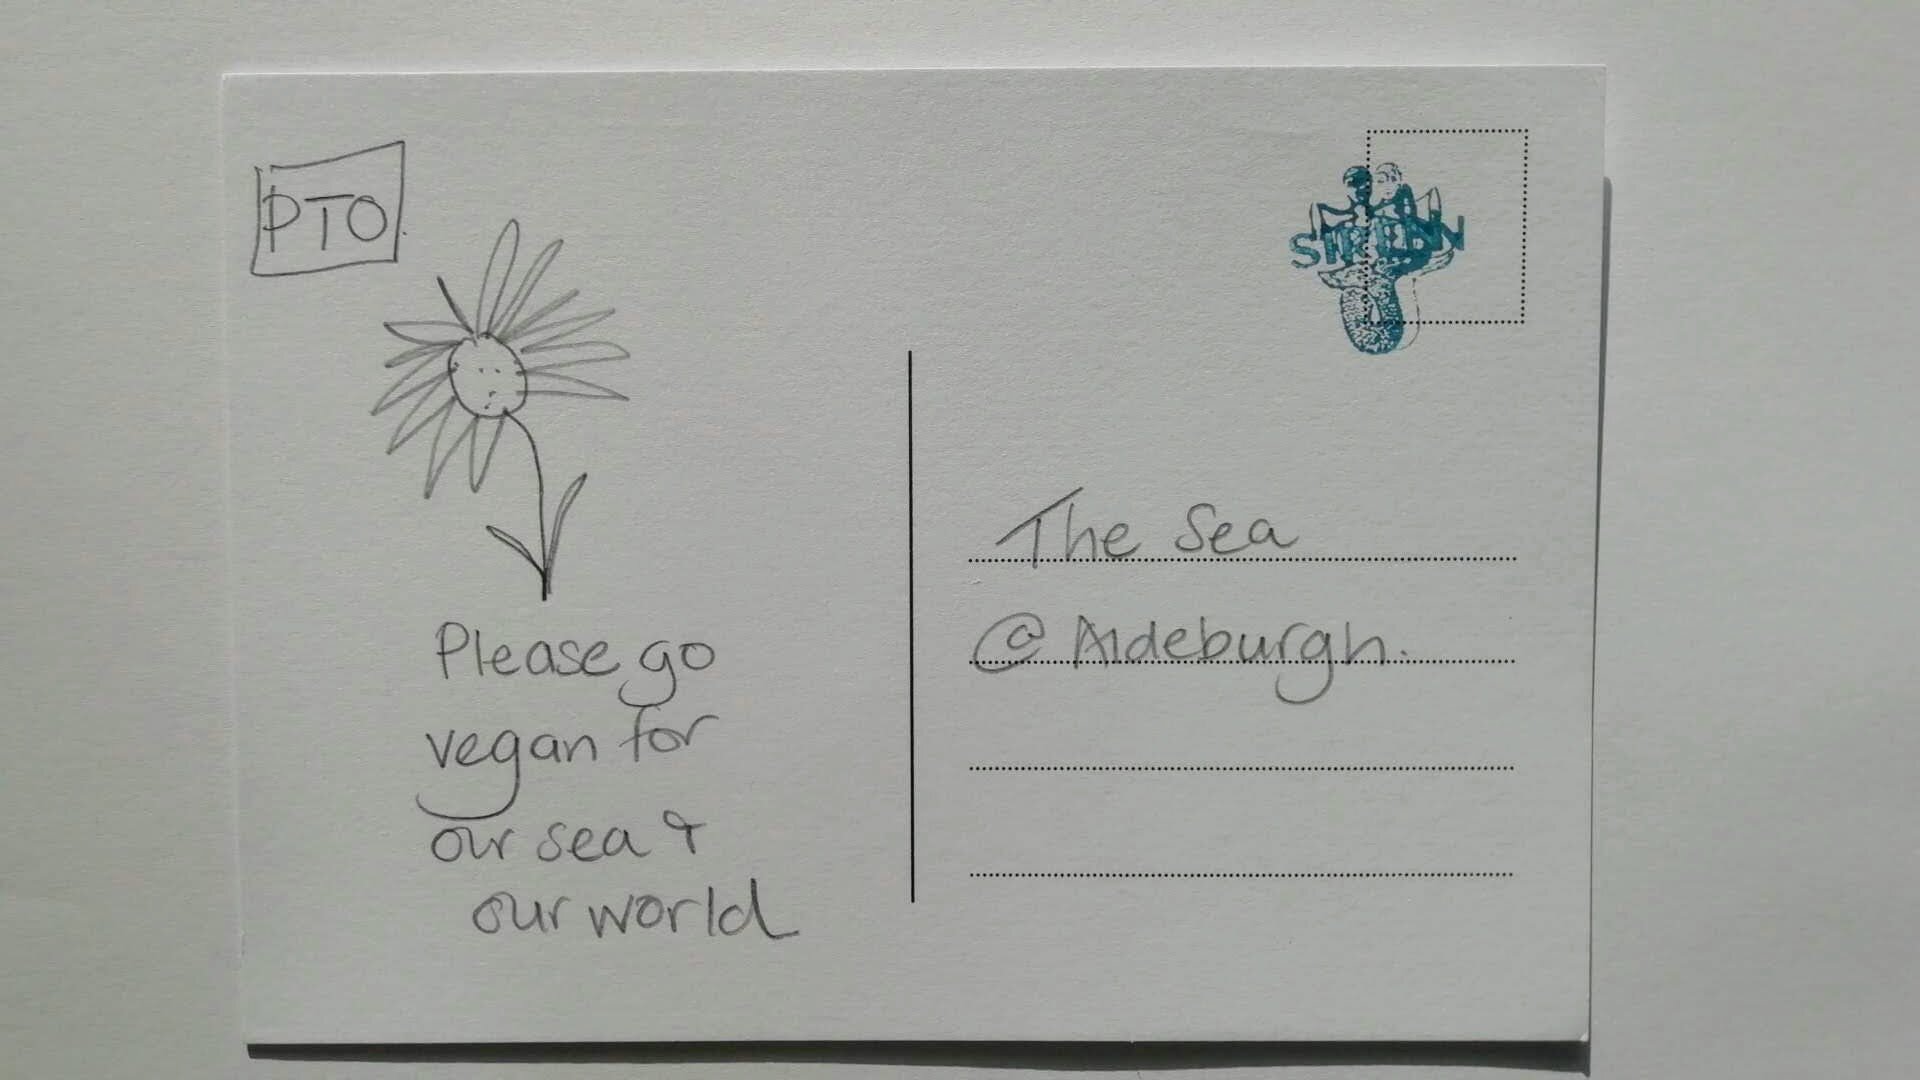 PTO.
Please go
vegan for
our sea &
our world
The Sea
@ Aldeburgh.